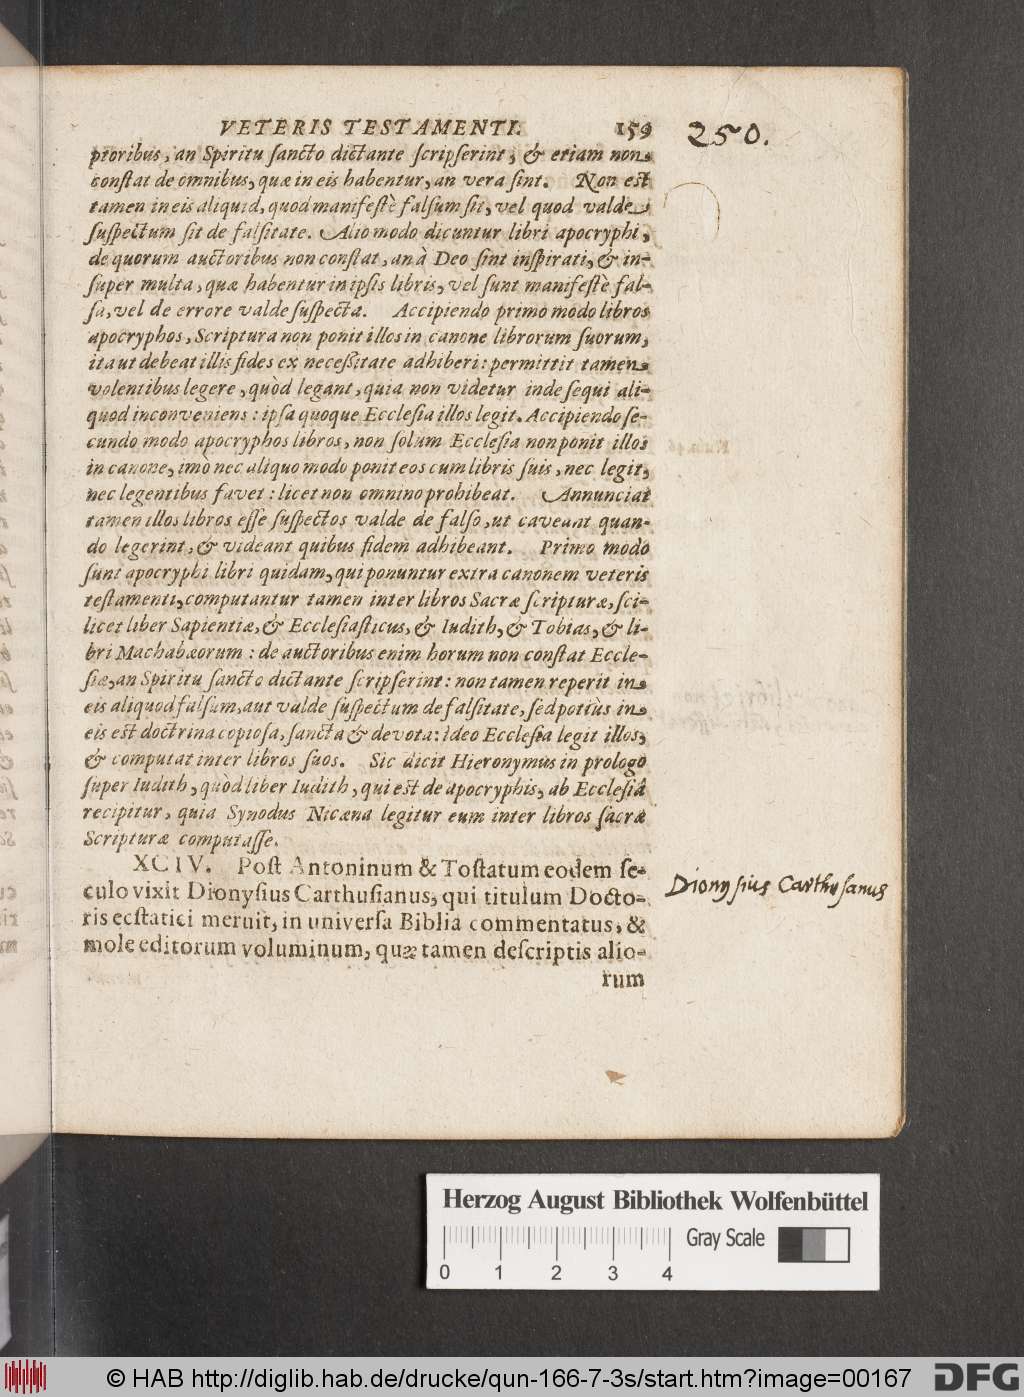 VETERIS TESTAMENTI. 159
250.
ptoribus, an Spiritu ſancto dictante ſcripſerint, & etiam non
conſtat de omnibus, quæ in eis habentur, an vera ſint. Non eſt
tamen in eis aliquid, quod manifeſtè falſum ſit, vel quod valde
ſuſpectum ſit de falſitate. Alio modo dicuntur libri apocryphi,
de quorum auctoribus non conſtat, an à Deo ſint inſpirati, & in-
ſuper multa, quæ habentur in ipſis libris, vel ſunt manifeſtè fal-
ſa, vel de errore valde ſuſpecta. Accipiendo primo modo libros
apocryphos, Scriptura non ponit illos in canone librorum ſuorum,
ita ut debeat illis fides ex neceßitate adhiberi: permittit tamen
volentibus legere, quòd legant, quia non videtur inde ſequi ali-
quod inconveniens: ipſa quoque Eccleſia illos legit. Accipiendo ſe-
cundo modo apocryphos libros, non ſolum Eccleſia non ponit illos
in canone, imò nec aliquo modo ponit eos cum libris ſuis, nec legit,
nec legentibus favet: licet non omnino prohibeat. Annunciat
tamen illos libros eſſe ſuſpectos valde de falſo, ut caveant quan-
do legerint, & videant quibus fidem adhibeant. Primo modo
ſunt apocryphi libri quidam, qui ponuntur extra canonem veteris
teſtamenti, computantur tamen inter libros Sacræ ſcripturæ, ſci-
licet liber Sapientiæ, & Eccleſiaſticus, & Iudith, & Tobias, & li-
bri Machabæorum: de auctoribus enim horum non conſtat Eccle-
ſiæ, an Spiritu ſancto dictante ſcripſerint: non tamen reperit in
eis aliquod falſum, aut valde ſuſpectum de falſitate, ſed potiùs in
eis eſt doctrina copioſa, ſancta & devota: ideo Eccleſia legit illos,
& computat inter libros ſuos. Sic dicit Hieronymus in prologo
ſuper Iudith, quòd liber Iudith, qui eſt de apocryphis, ab Eccleſiâ
recipitur, quia Synodus Nicæna legitur eum inter libros ſacræ
Scripturæ computaſſe.
XCIV. Poſt Antoninum & Toſtatum eodem ſe-
culo vixit Dionyſius Carthuſianus, qui titulum Docto-
ris ecſtatici meruit, in univerſa Biblia commentatus, &
mole editorum voluminum, quæ tamen deſcriptis alio-
rum
Dionyſius Carthuſanus
Herzog August Bibliothek Wolfenbüttel
0 1 2 3 4 Gray Scale
© HAB http://diglib.hab.de/drucke/qun-166-7-3s/start.htm?image=00167
DFG